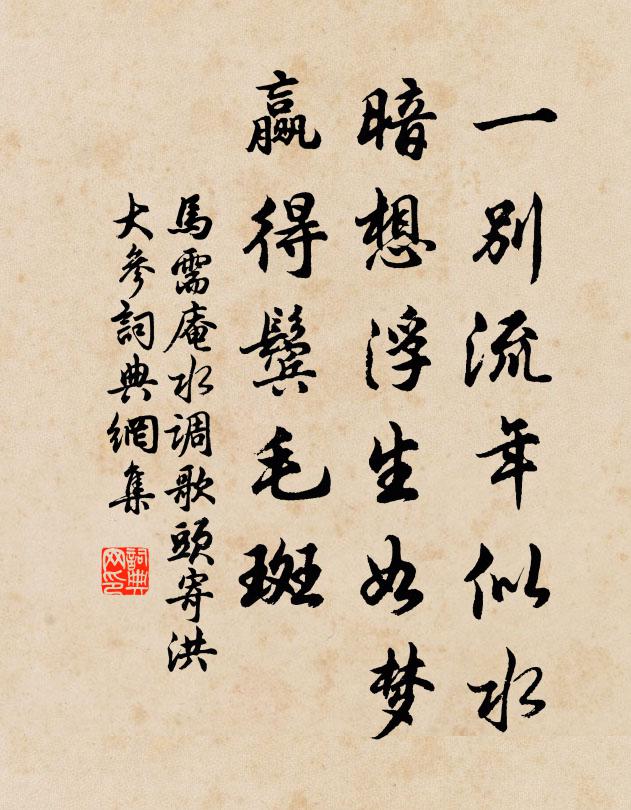 一别流年似水
暗想浮生如梦
赢得鬓毛斑
馬需庵水调歌頭寄洪
大參詞典網集
詞典
网印